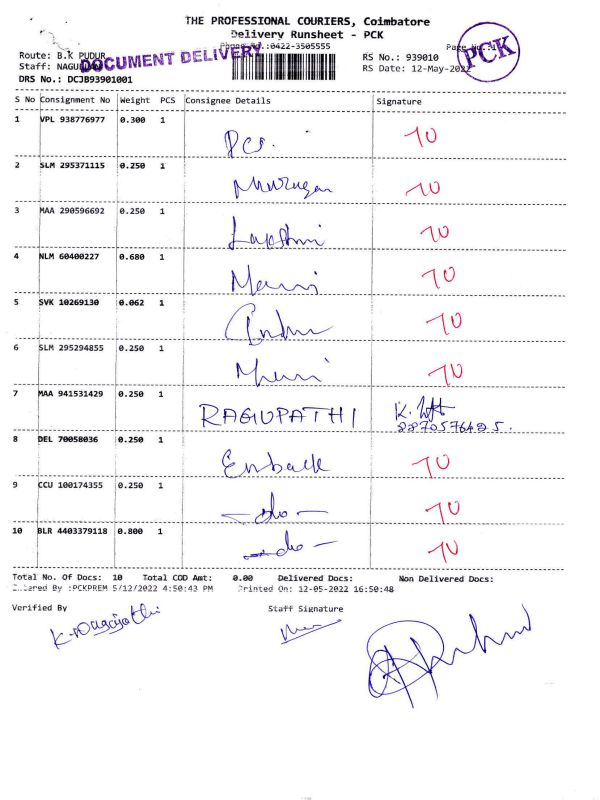 THE PROFESSIONAL COURIERS, Coimbatore
Delivery Runsheet - PCK
Phone No.:0422-3505555
Page No.:1
PCK
Route: B.K PUDUR
DOCUMENT DELIVERY
RS No.: 939010
Staff:
RS Date: 12-May-2022
DRS No.: DCJB93901001
S No Consignment No Weight PCS Consignee Details Signature
1 VPL 938776977 0.300 1 Pcs. 70
2 SLM 295371115 0.250 1 Murugan 70
3 MAA 290596692 0.250 1 Lakshmi 70
4 NLM 60400227 0.680 1 Mani 70
5 SVK 10269130 0.062 1 70
6 SLM 295294855 0.250 1 70
7 MAA 941531429 0.250 1 RAGUPATHI K.
8 DEL 70058036 0.250 1 70
9 CCU 100174355 0.250 1 -do- 70
10 BLR 4403379118 0.800 1 -do- 70
Total No. Of Docs: 10 Total COD Amt: 0.00 Delivered Docs: Non Delivered Docs:
Entered By :PCKPREM 5/12/2022 4:50:43 PM Printed On: 12-05-2022 16:50:48
Verified By Staff Signature